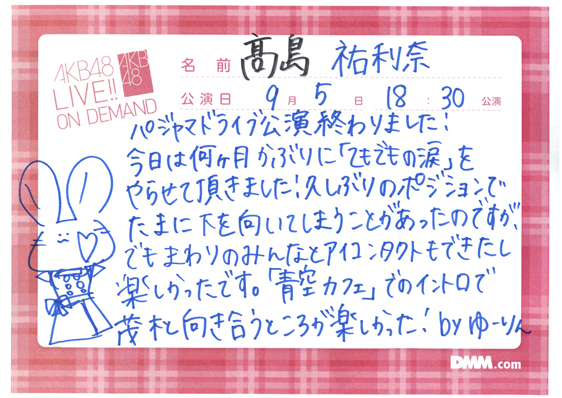 AKB48
LIVE!!
ON DEMAND
AKB
48
名前 髙島 祐利奈
公演日 9月5日 18:30公演
パジャマドライブ公演終わりました!
今日は何ヶ月かぶりに「てもでもの涙」を
やらせて頂きました!久しぶりのポジションで
たまに下を向いてしまうことがあったのですが、
でもまわりのみんなとアイコンタクトもできたし
楽しかったです。「青空カフェ」でのイントロで
茂木と向き合うところが楽しかった! byゆーりん
DMM.com